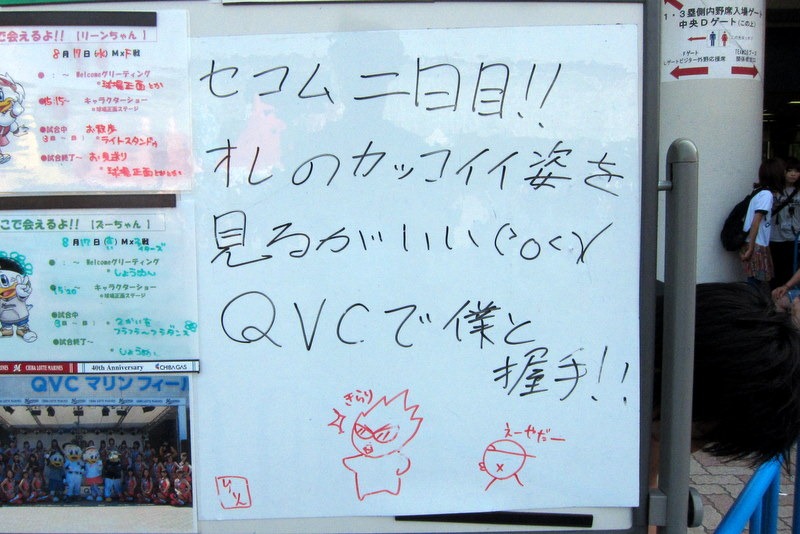 で会えるよ!!【リーンちゃん】
8月17日(水)MxF戦
●:～Welcomeグリーティング
*球場正面とか
●15:15～ キャラクターショー
*球場正面ステージ
●試合中 お散歩
*ライトスタンド
●試合終了～ お見送り
*球場正面
こで会えるよ!!【ズーちゃん】
8月17日
●:～Welcomeグリーティング
しょうめん
キャラクターショー
*球場正面ステージ
●試合終了～
しょうめん
MARINES
CHIBA LOTTE MARINES
40th Anniversary
CHIBA GAS
QVCマリンフィール
セコム二日目!!
オレのカッコイイ姿を
見るがいい
QVCで僕と
握手!!
きらり
えーやだー
1・3塁側内野席入場ゲート
中央Dゲート(この上)
Fゲート
レフトビジター外野応援席